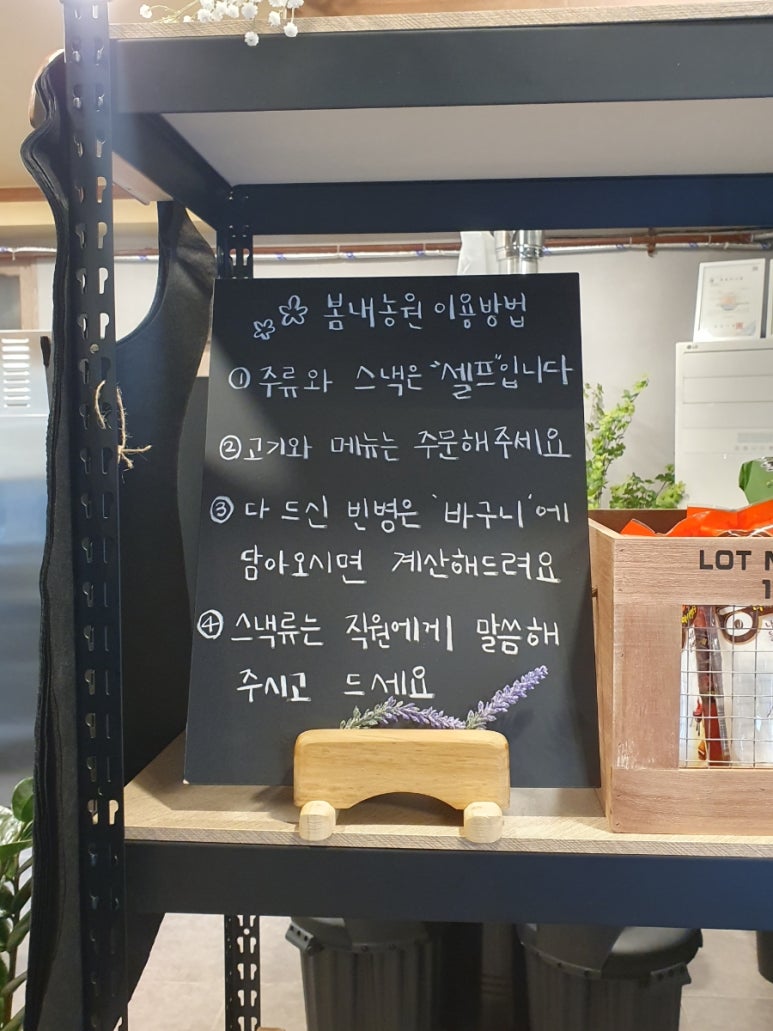 봄내농원 이용방법
① 주류와 스낵은 "셀프"입니다
② 고기와 메뉴는 주문해주세요
③ 다 드신 빈병은 '바구니'에
담아오시면 계산해드려요
④ 스낵류는 직원에게 말씀해
주시고 드세요
LOT